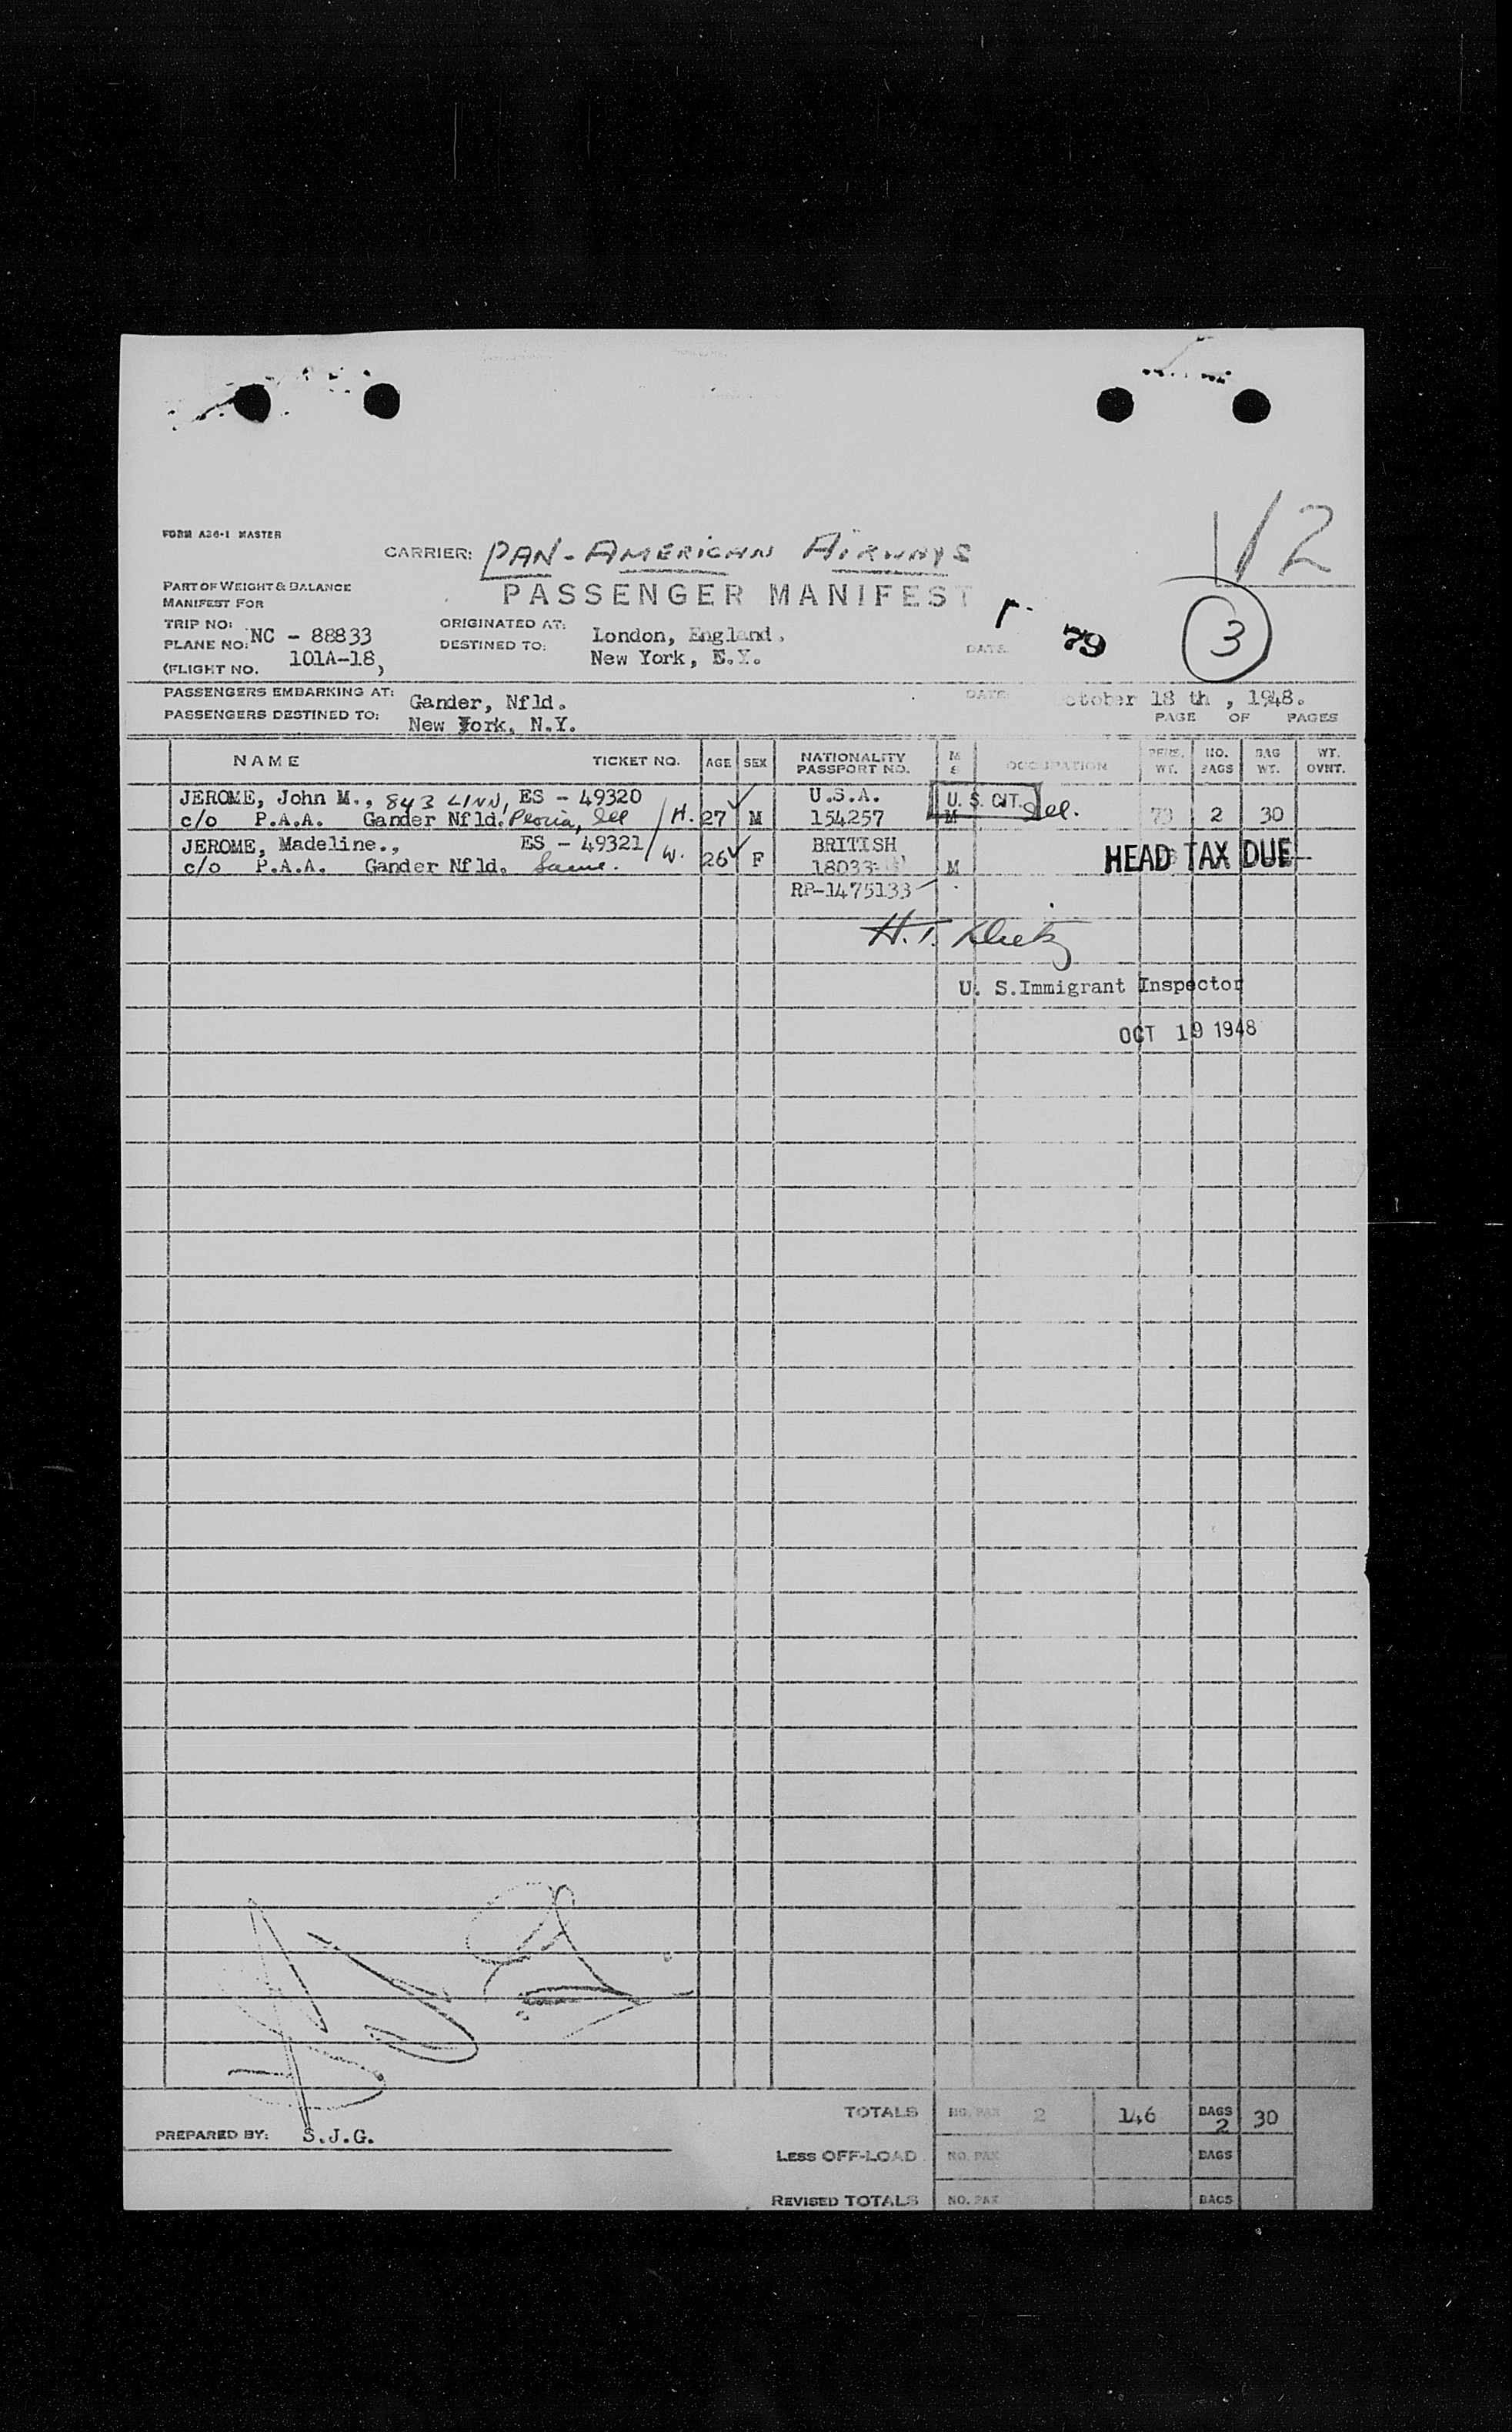 12
FORM A36-1 MASTER
CARRIER: PAN-AMERICAN AIRWAYS
PART OF WEIGHT & BALANCE
MANIFEST FOR
PASSENGER MANIFEST
TRIP NO:
PLANE NO: NC - 88833
(FLIGHT NO. 101A-18,)
ORIGINATED AT: London, England.
DESTINED TO: New York,
DATE 79
3
PASSENGERS EMBARKING AT: Gander, Nfld.
PASSENGERS DESTINED TO: New York, N.Y.
DATE: ctober 18 th , 1948.
PAGE OF PAGES
NAME TICKET NO. AGE SEX NATIONALITY PASSPORT NO. M S OCCUPATION PERS. WT. NO. BAGS BAG WT. WT. OVNT.
JEROME, John M., 843 LINN, ES - 49320 U.S.A. U. S. CIT.
c/o P.A.A. Gander Nfld. Peoria, Ill H. 27 M 154257 M Ill. 73 2 30
JEROME, Madeline., ES - 49321 BRITISH HEAD TAX DUE
c/o P.A.A. Gander Nfld. Same. W. 26 F M
RP-1475133
H.T.
U. S.Immigrant Inspector
OCT 19 1948
TOTALS NO. PAX 2 146 BAGS 2 30
PREPARED BY: S.J.G.
LESS OFF-LOAD NO. PAX BAGS
REVISED TOTALS NO. PAX BAGS